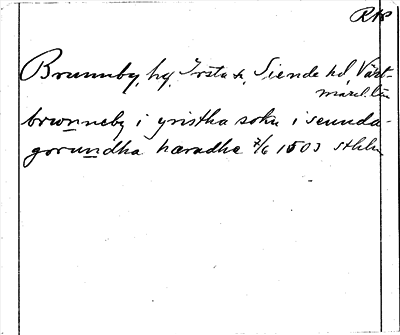 RAP
Brunnby, by, Irsta sn, Siende hd, Väst-
manl. län
brwnneby i yristha sokn i seunda-
gorundha hæradhe 7/6 1503 sthlm